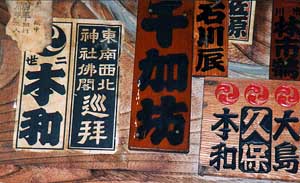 二世
本和
東南西北
神社佛閣
巡拜
千加坊
石川辰
笠原
大島
久保
本和